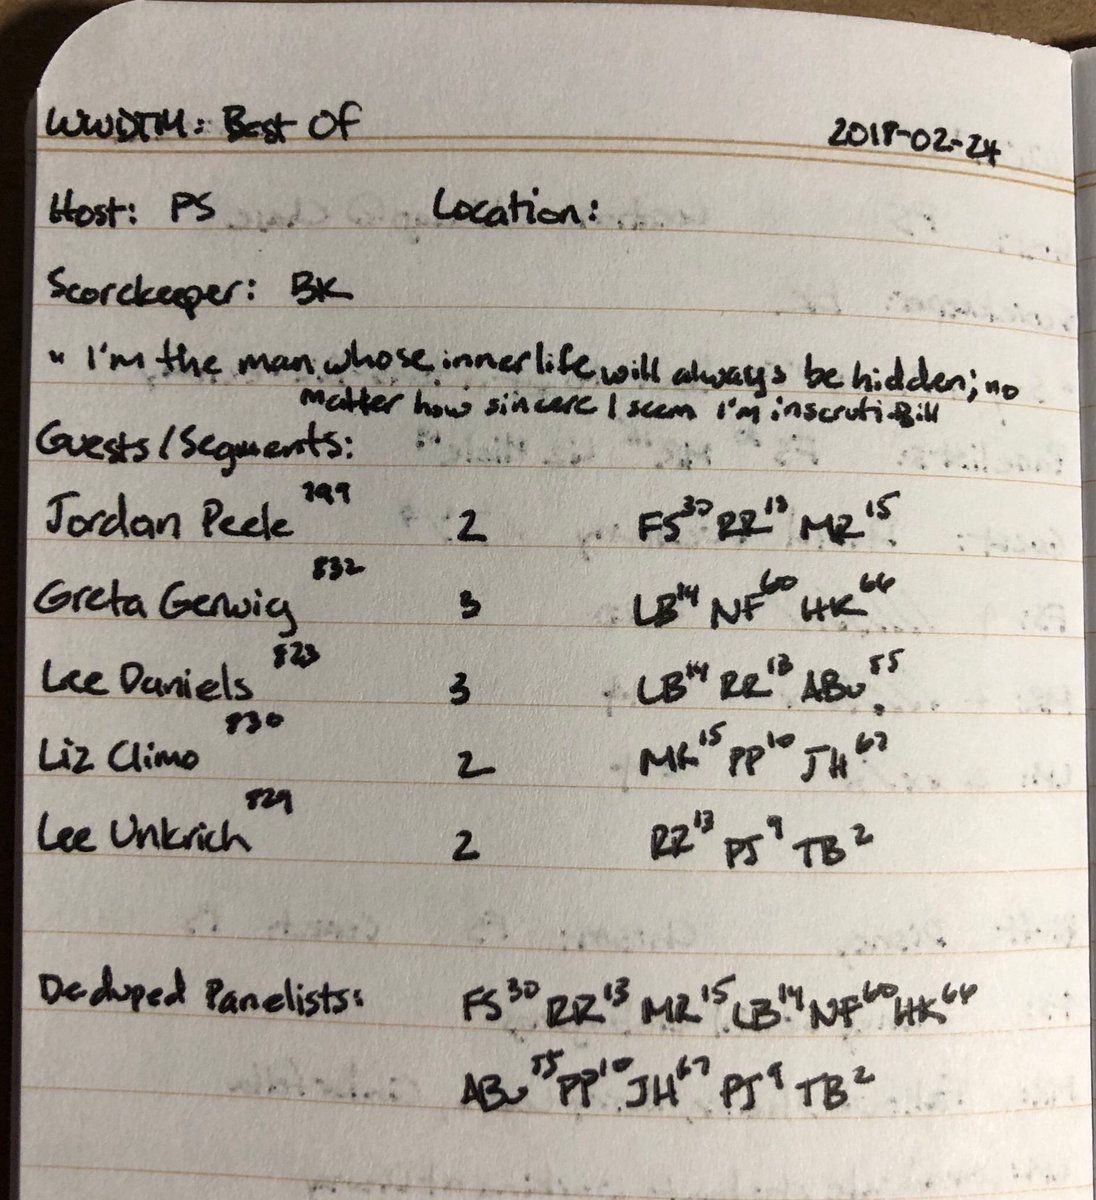 WWDTM: Best Of 2018-02-24
Host: PS Location:
Scorekeeper: BK
" I'm the man whose inner life will always be hidden; no
matter how sincere I seem I'm inscruti-Bill
Guests/Segments:
Jordan Peele 799 2 FS30 RR13 MR15
Greta Gerwig 832 3 LB14 NF60 HK66
Lee Daniels 823 3 LB14 RR13 ABu55
Liz Climo 830 2 MR15 PP10 JH67
Lee Unkrich 829 2 RR13 PJ9 TB2
Deduped Panelists: FS30 RR13 MR15 LB14 NF60 HK66
ABu55 PP10 JH67 PJ9 TB2